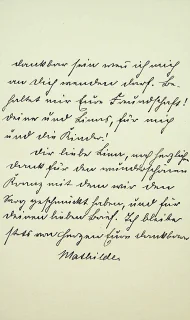 dankbar sein wenn ich mich
an Dich wenden darf. Be-
haltet mir Eure Freundschaft!
Deine und Linas, für mich
und die Kinder!
Dir liebe Lina, noch herzlich
Dank für den wunderschönen
Kranz mit dem wir den
Sarg geschmückt haben, und für
Deinen lieben Brief. Ich bleibe
stets von Herzen Eure dankbare
Mathilde